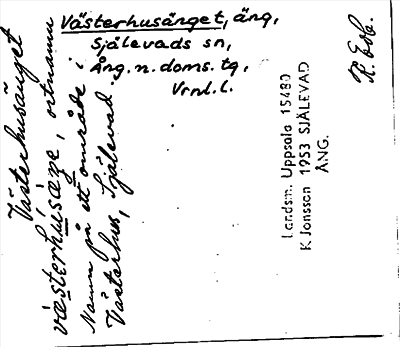 Västerhusänget, äng,
Själevads sn,
Ång. n. doms. tg,
Vrnl. l.
Västerhusänget
västerhúsæŋe, ortnamn
Namn på ett område i
Västerhus, Själevad
Landsm. Uppsala 15480
K Jonsson 1953 SJÄLEVAD
ÅNG.